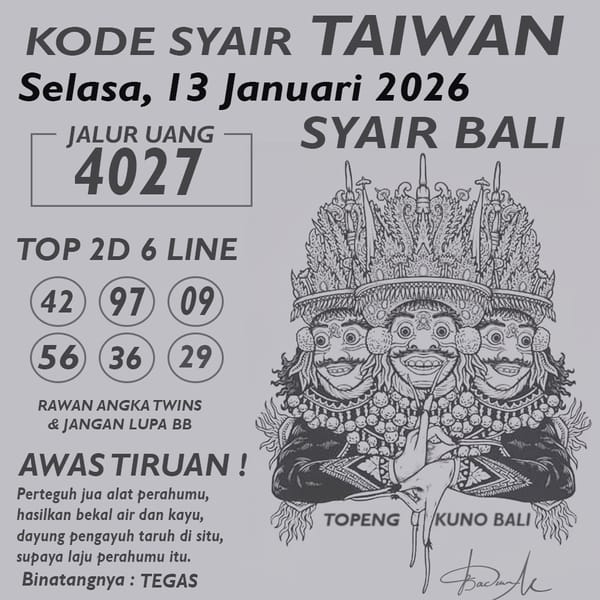 KODE SYAIR TAIWAN
Selasa, 13 Januari 2026
SYAIR BALI
JALUR UANG
4027
TOP 2D 6 LINE
42 97 09
56 36 29
RAWAN ANGKA TWINS
& JANGAN LUPA BB
AWAS TIRUAN !
Perteguh jua alat perahumu,
hasilkan bekal air dan kayu,
dayung pengayuh taruh di situ,
supaya laju perahumu itu.
Binatangnya : TEGAS
TOPENG KUNO BALI